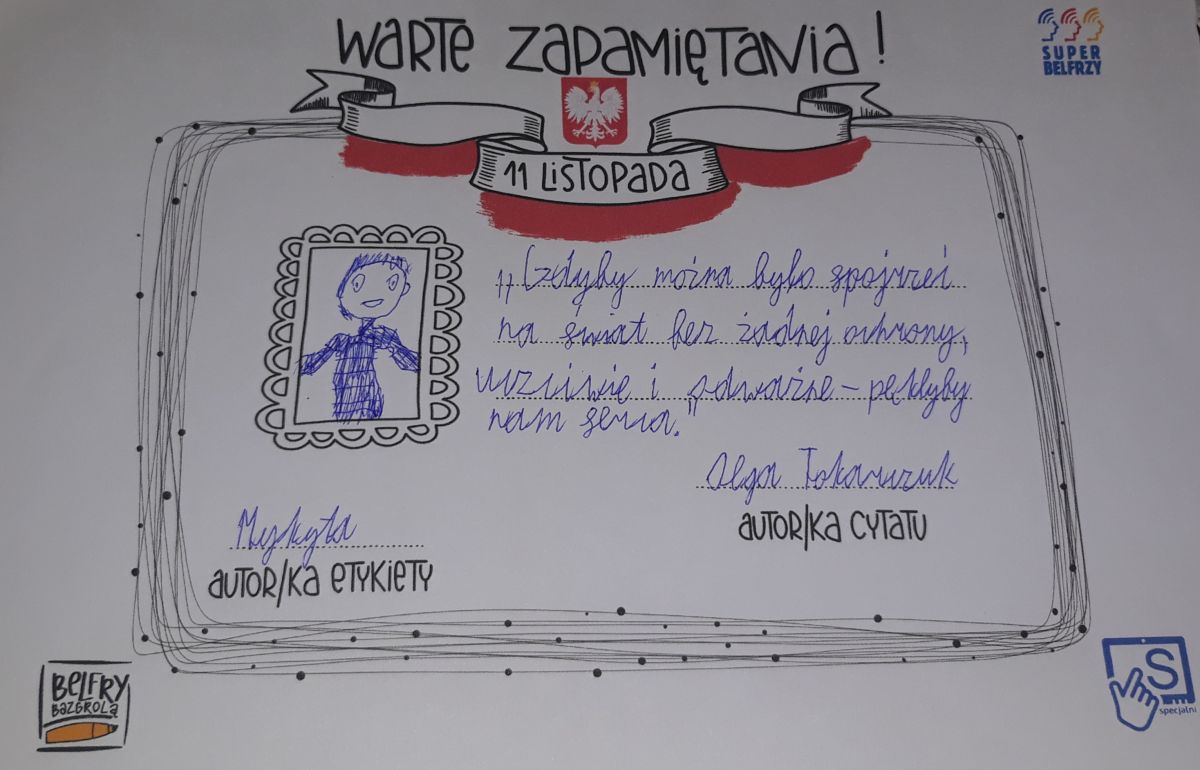 WARTE ZAPAMIĘTANIA!
SUPER
BELFRZY
11 LISTOPADA
„Gdyby można było spojrzeć
na świat bez żadnej ochrony,
uczciwie i odważnie – pękłyby
nam serca."
Olga Tokarczuk
AUTOR/KA CYTATU
Mykyta
AUTOR/KA ETYKIETY
BELFRY
BAZGROLĄ
S
specjalni